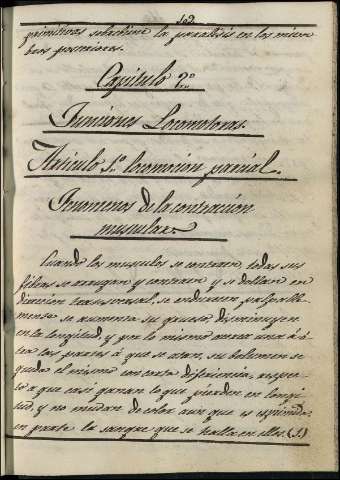 102.
primitivas sobreviene la paralisis en los miem-
bros posteriores.
Capitulo 2º
Funciones Locomotoras.
Articulo 1º locomocion parcial.
Fenomenos de la contracción
muscular
Cuando los musculos se contraen todas sus
fibras se arrugan y contraen y se doblan en
direccion transversal, se endurecen palpable-
mente se aumenta su grueso, disminuyen
en la longitud, y por lo mismo acerca una á ó-
tra las partes á que se atan, su bolumen se
queda el mismo con corta diferiencia, respec-
to a que casi ganan lo que pierden en longi-
tud, y no mudan de color aun que es esprimida
en parte la sangre que se halla en ellos. (1)